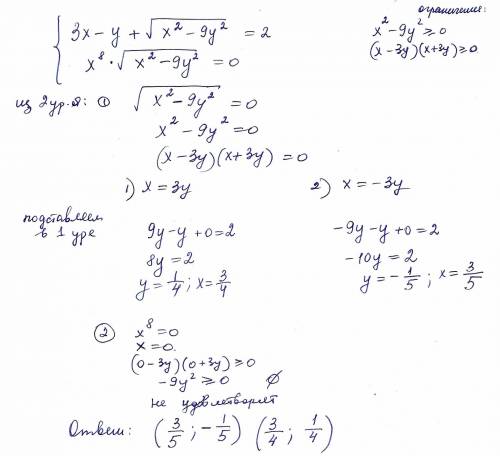 ограничение:
{ 3x - y + √(x² - 9y²) = 2
x⁸ · √(x² - 9y²) = 0
x² - 9y² ≥ 0
(x - 3y)(x + 3y) ≥ 0
из 2 ур-я: ① √(x² - 9y²) = 0
x² - 9y² = 0
(x - 3y)(x + 3y) = 0
1) x = 3y
2) x = -3y
подставляем
в 1 уре
9y - y + 0 = 2
8y = 2
y = 1/4 ; x = 3/4
-9y - y + 0 = 2
-10y = 2
y = -1/5 ; x = 3/5
② x⁸ = 0
x = 0.
(0 - 3y)(0 + 3y) ≥ 0
-9y² ≥ 0 ∅
не удовлетворят
Ответ: (3/5 ; -1/5) (3/4 ; 1/4)